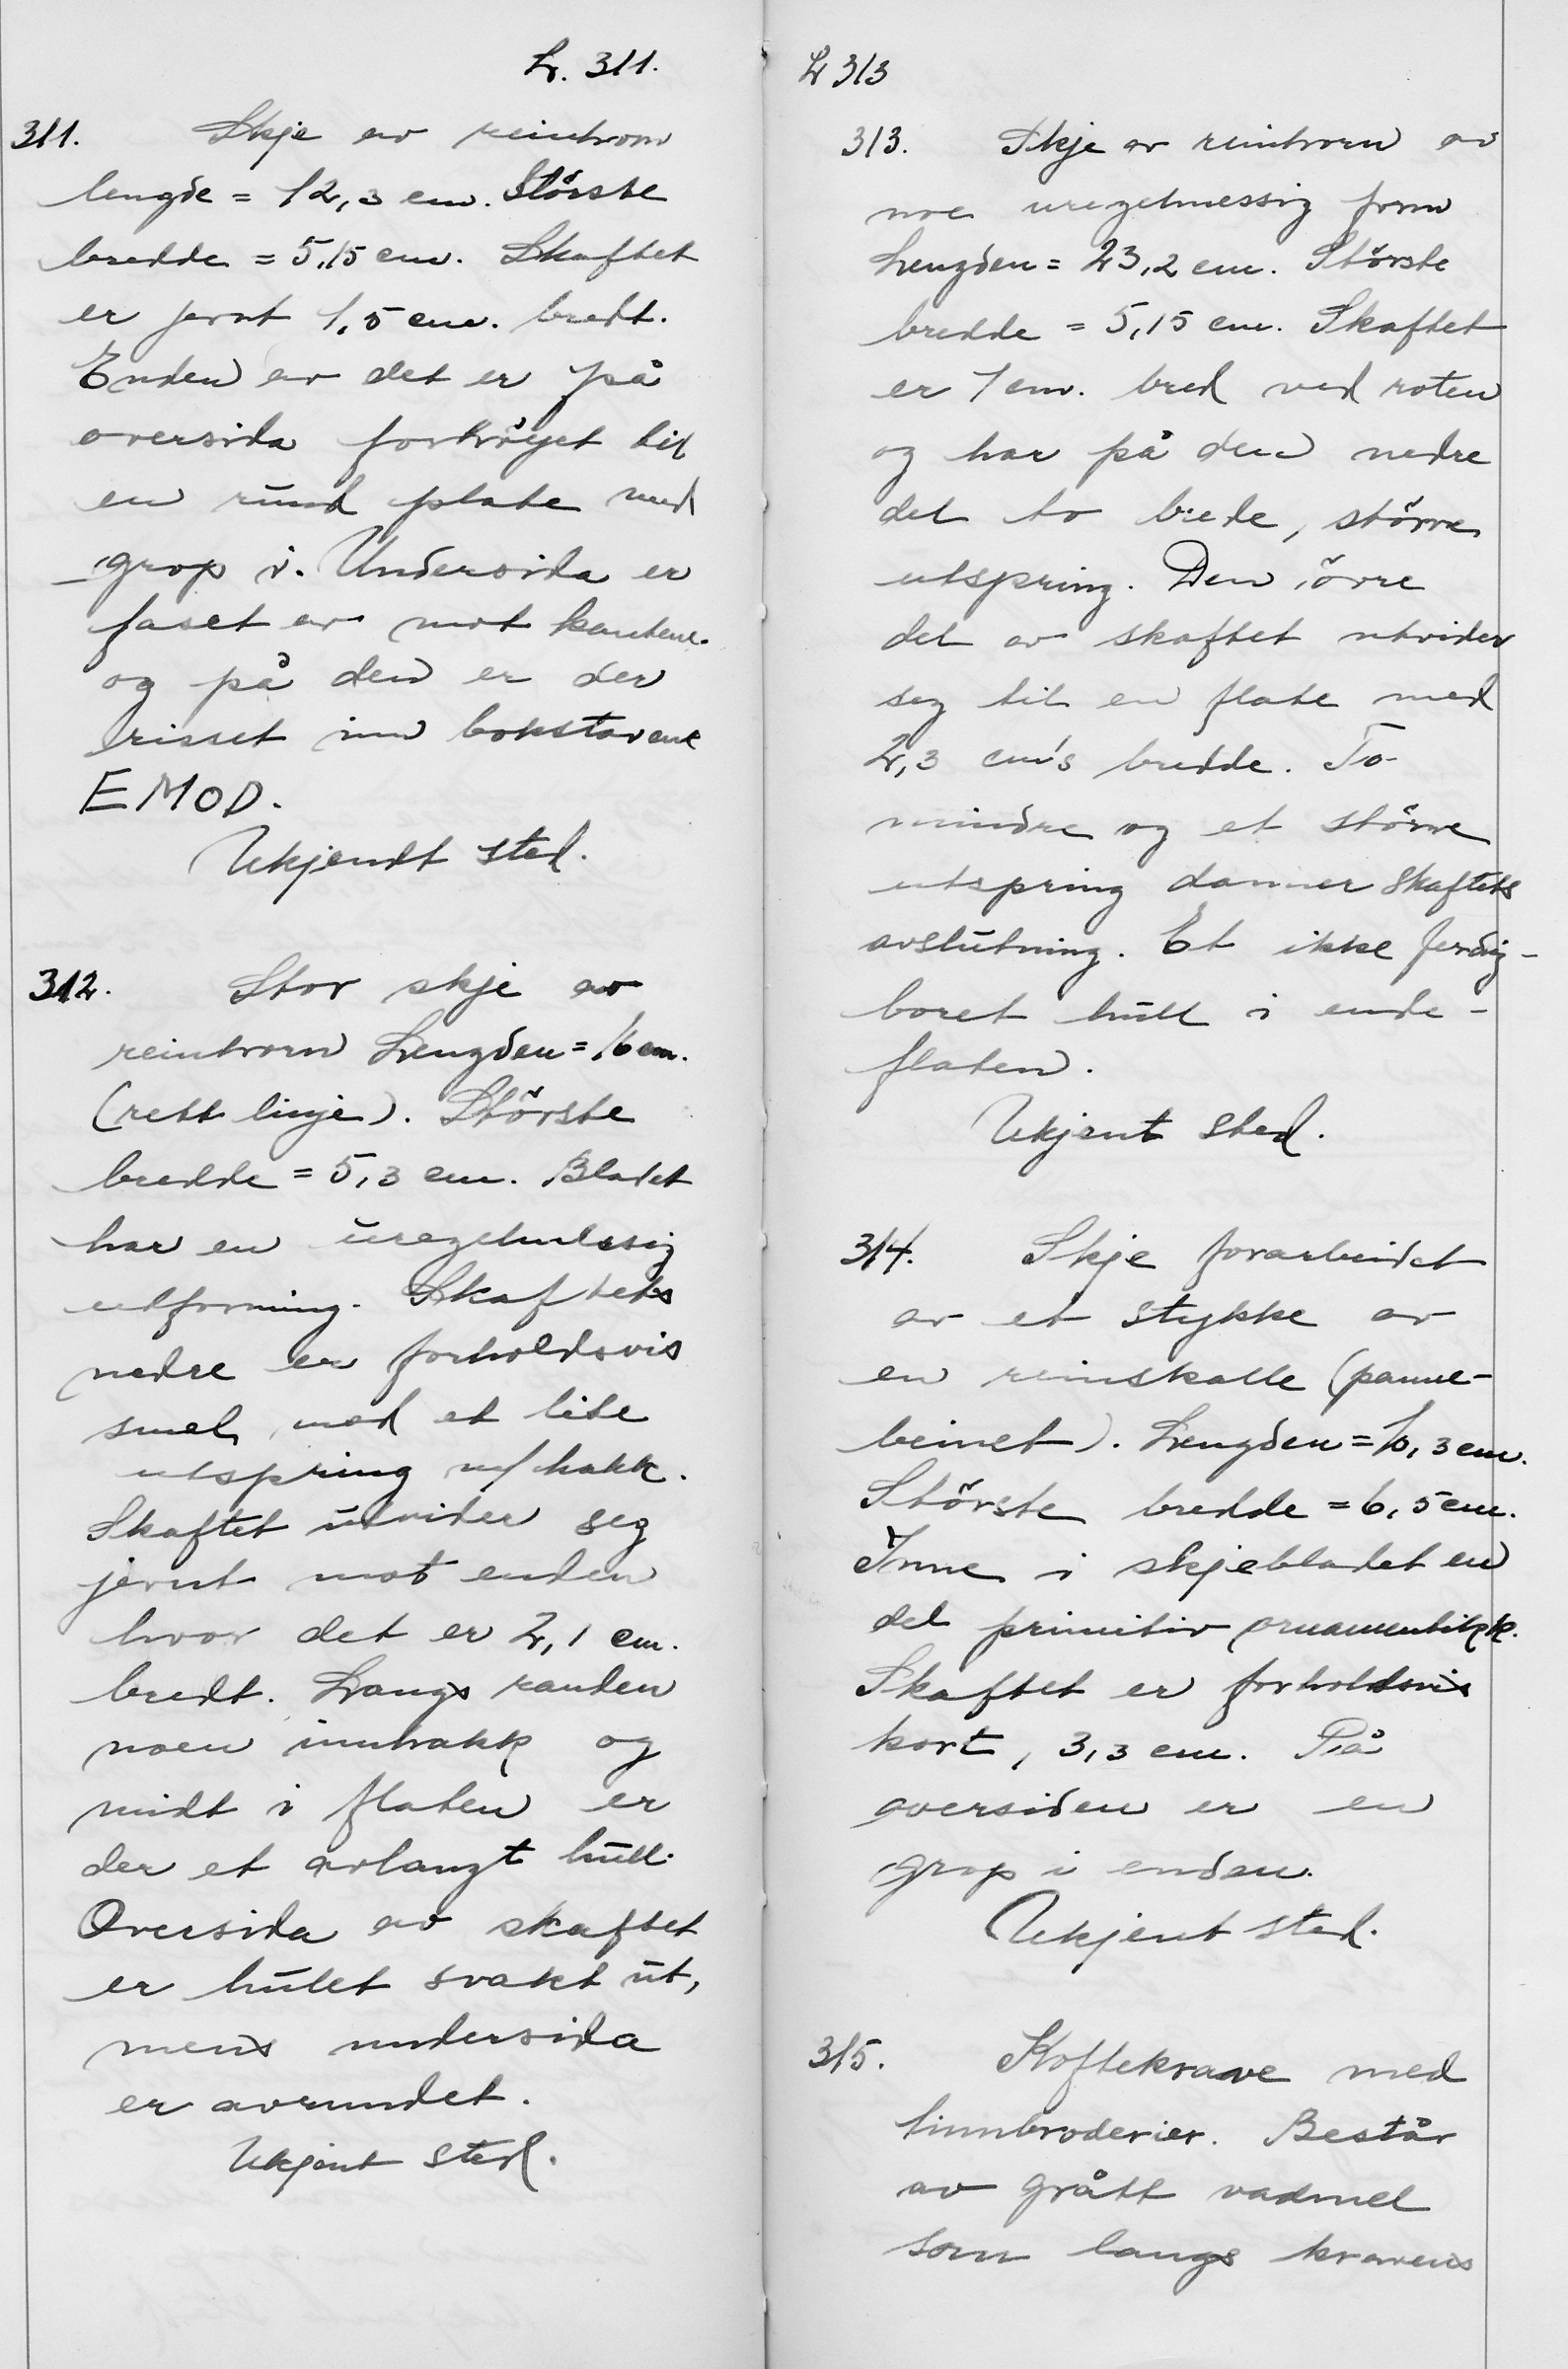 L. 311.
311. Skje av reinhorn
lengde = 12,3 cm. Störste
bredde = 5,15 cm. Skaftet
er jevnt 1,5 cm. bredt.
Enden av det er på
oversida forhöyet til
en rund plate med
grop i. Undersida er
faset av mot kantene.
og på den er der
risset inn bokstavene
EMOD.
Ukjendt sted.
312. Stor skje av
reinhorn Lengden = 16 cm.
(rett linje). Störste
bredde = 5,3 cm. Bladet
har en uregelmessig
utforming. Skaftets
nedre er forholdsvis
smel, med et lite
utspring m/hakk.
Skaftet utvider seg
jevnt mot enden
hvor det er 2,1 cm.
bredt. Langs randen
noen innhakk og
midt i flaten er
der et avlangt hull.
Oversida av skaftet
er hulet svakt ut,
mens undersida
er avrundet.
Ukjent sted.
L 313
313. Skje av reinhorn av
noe uregelmessig form
Lengden = 23,2 cm. Störste
bredde = 5,15 cm. Skaftet
er 1 cm. bred ved roten
og har på den nedre
del to brede, större
utspring. Den övre
del av skaftet utvider
seg til en flate med
2,3 cm's bredde. To
mindre og et större
utspring danner skaftets
avslutning. Et ikke ferdig-
boret hull i ende-
flaten.
Ukjent sted.
314. Skje forarbeidet
av et stykke av
en reinskalle (panne-
beinet). Lengden = 10,3 cm.
Störste bredde = 6,5 cm.
Inne i skjebladet en
del primitiv ornamentikk.
Skaftet er forholdsvis
kort, 3,3 cm. På
oversiden er en
grop i enden.
Ukjent sted.
315. Koftekrave med
tinnbroderier. Består
av grått vadmel
som langs kravens